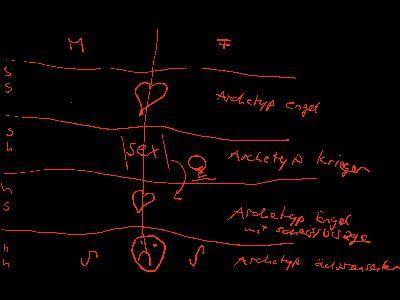 M F
s
s
Archetyp Engel
s
h
|sex|
Archetyp Krieger
h
s
Archetyp Engel
mit
h
h
Archetyp